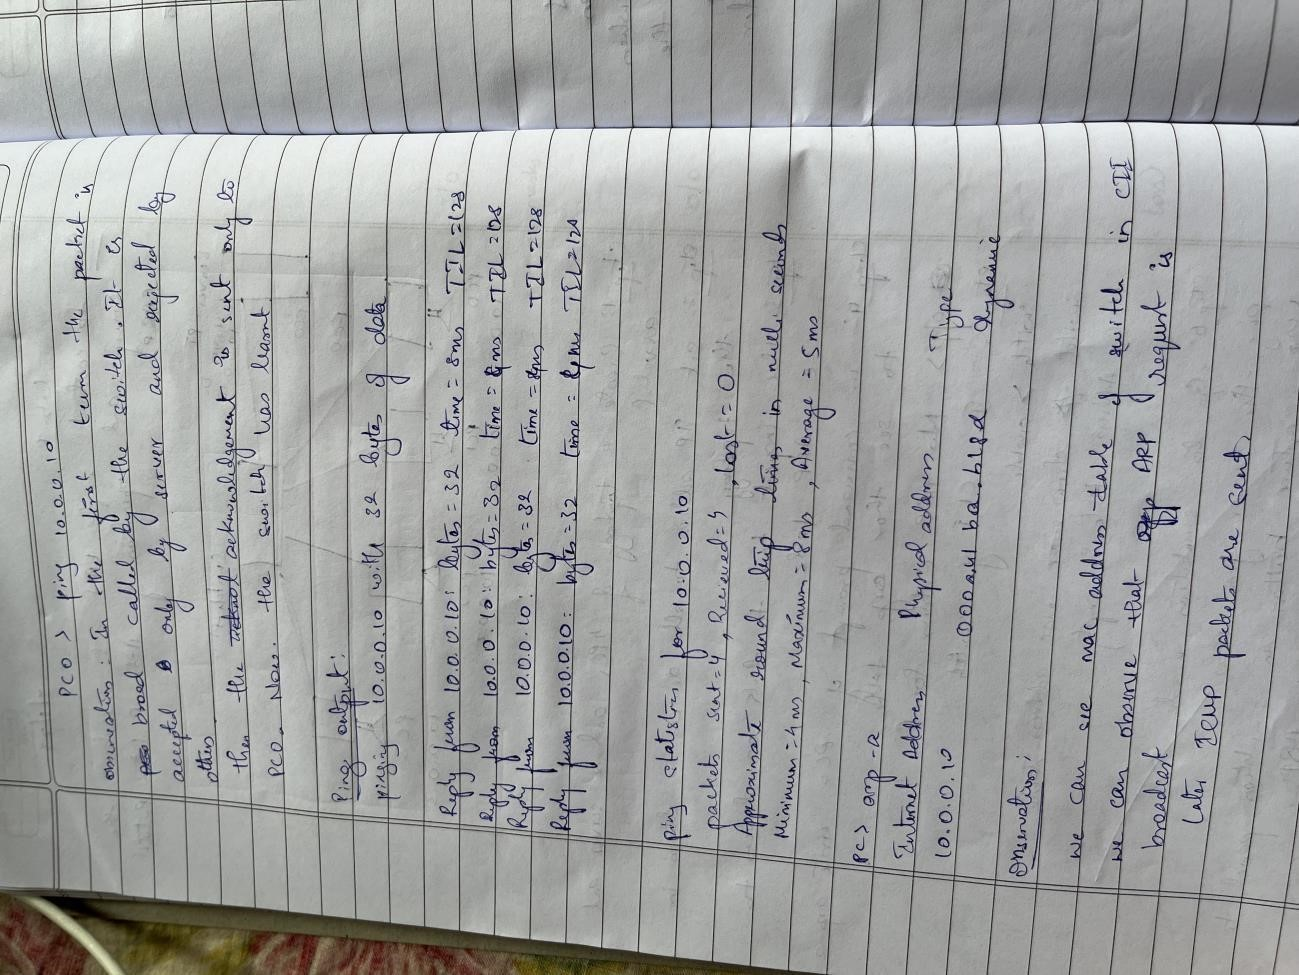 PC0 > ping 10.0.0.10
observation: In the first turn the packet is
broad called by the switch. It is
accepted only by server and rejected by
others
then the acknowledgement is sent only to
PC0. Now the switch has learnt
Ping output:
pinging 10.0.0.10 with 32 bytes of data
Reply from 10.0.0.10: bytes = 32 time = 8ms TTL = 128
Reply from 10.0.0.10: bytes = 32 time = 4ms TTL = 128
Reply from 10.0.0.10: bytes = 32 time = 4ms TTL = 128
Reply from 10.0.0.10: bytes = 32 time = 4ms TTL = 128
ping statistics for 10.0.0.10
packets sent = 4, Recieved = 4, lost = 0
Approximate round trip times in milli seconds
Minimum = 4ms, Maximum = 8ms, Average = 5ms
PC > arp -a
Internet Address Physical address Type
10.0.0.10 dynamic
Observation:
we can see mac address table of switch in CLI
we can observe that ARP request is
broadcast
Later ICMP packets are sent.